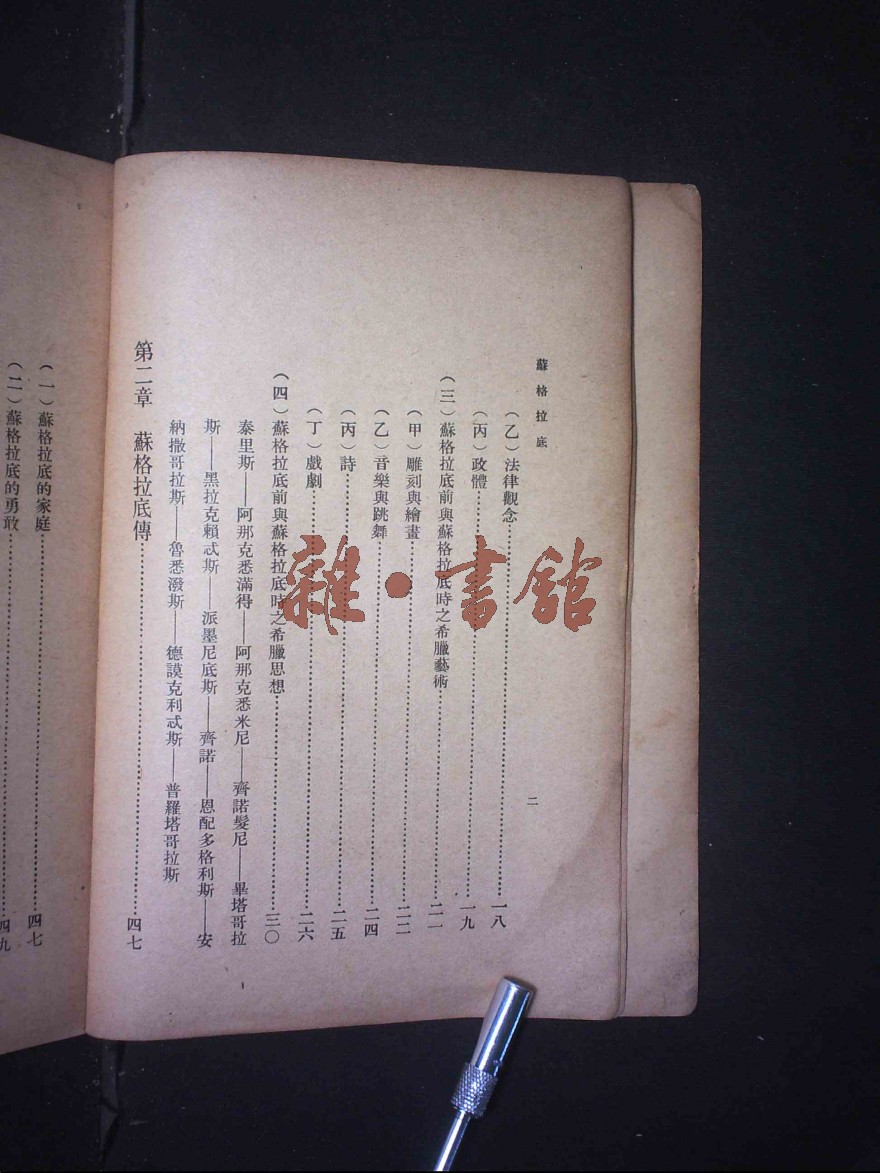 蘇格拉底
二
（乙）法律觀念……一八
（丙）政體……一九
（三）蘇格拉底前與蘇格拉底時之希臘藝術……二一
（甲）雕刻與繪畫……二二
（乙）音樂與跳舞……二四
（丙）詩……二五
（丁）戲劇……二六
（四）蘇格拉底前與蘇格拉底時之希臘思想……三〇
泰里斯——阿那克悉滿得——阿那克悉米尼——齊諾髮尼——畢塔哥拉
斯——黑拉克賴忒斯——派墨尼底斯——齊諾——恩配多格利斯——安
納撒哥拉斯——魯悉潑斯——德謨克利忒斯——普羅塔哥拉斯
第二章　蘇格拉底傳……四七
（一）蘇格拉底的家庭……四七
（二）蘇格拉底的勇敢……四九
雜·書館